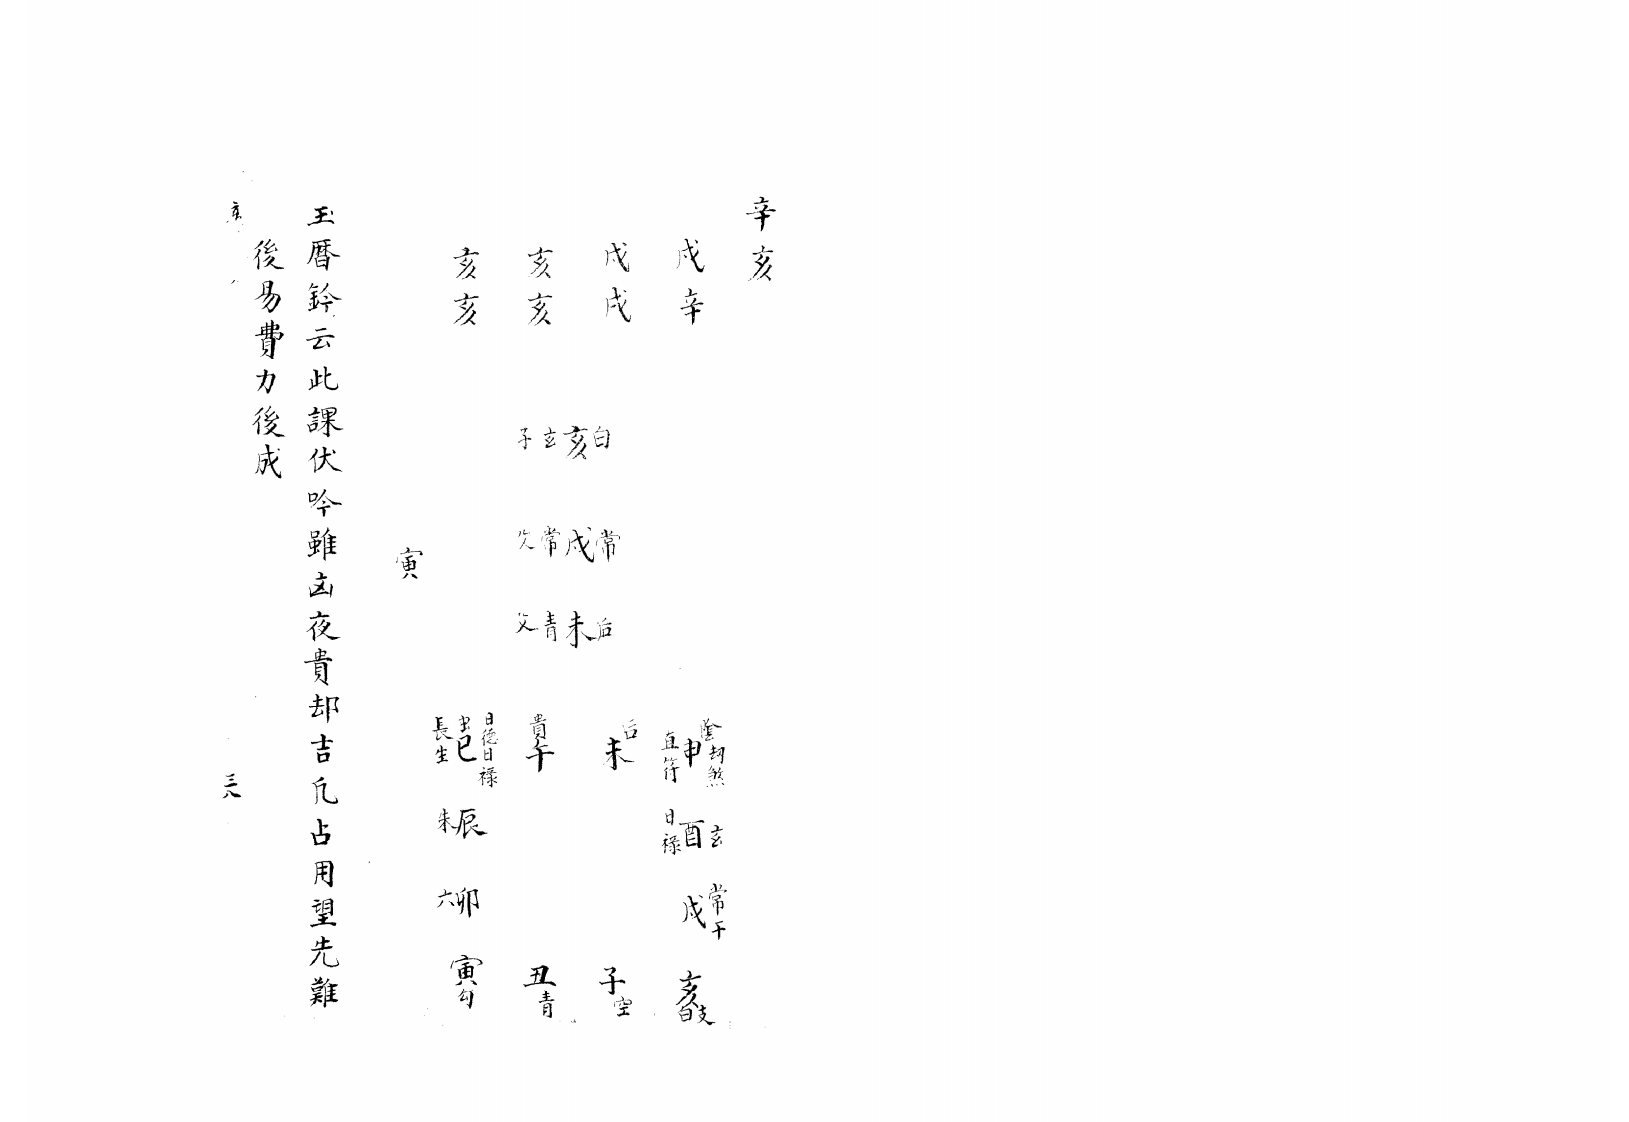 辛亥
戌辛
戌戌
亥亥
亥亥
白亥玄子
常戌常
后未青父
陰劫煞
申
直符
玄酉
日祿
常干
戌
亥
白支
后
未
子
空
貴
午
丑
青
日德日祿
巳
長生
辰
朱
卯
六
寅
勾
寅
玉曆鈐云此課伏吟雖凶夜貴却吉凡占用望先難
後易費力後成
亥
三八